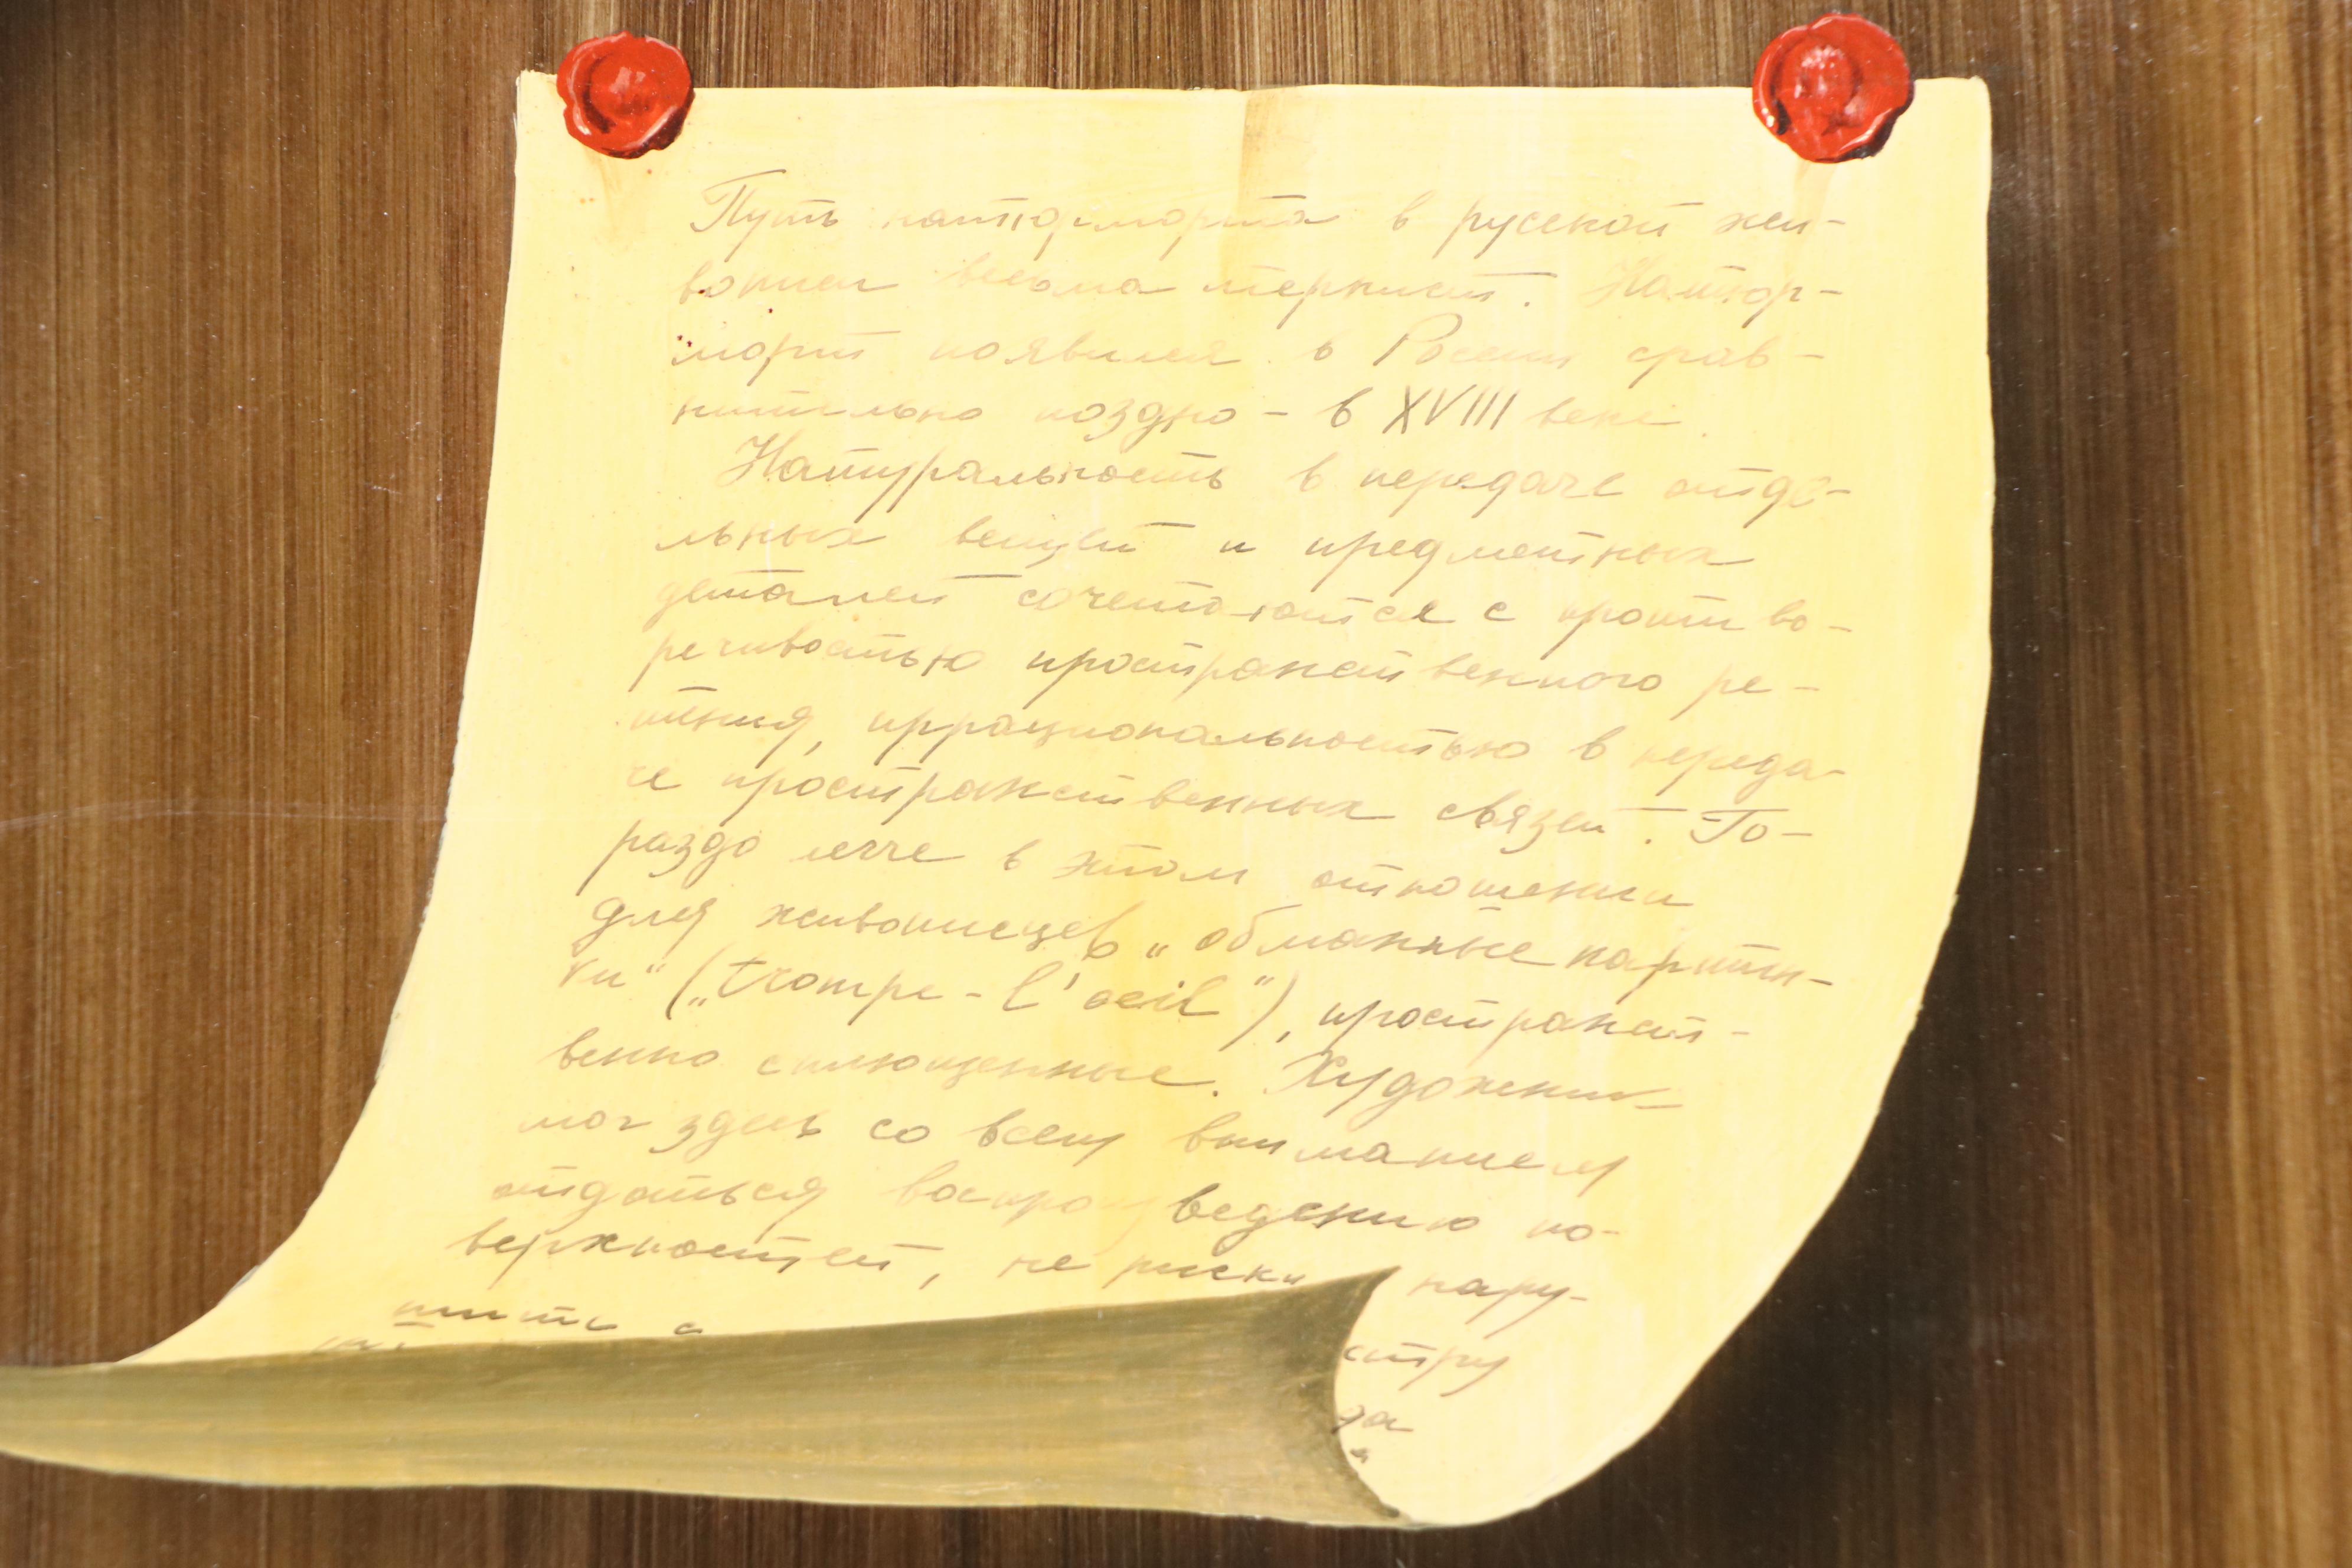 Путь натюрморта в русской жи-
вописи весьма тернист. Натюр-
морт появился в России срав-
нительно поздно - в XVIII веке.
Натуральность в передаче отде-
льных вещей и предметных
деталей сочетаются с противо-
речивостью пространственного ре-
шения, иррациональностью в переда-
че пространственных связей. Го-
раздо легче в этом отношении
для живописцев „обманные картин-
ки“ („trompe-l'oeil“), пространст-
венно сплющенные. Художник
мог здесь со всем вниманием
отдаться воспроизведению по-
верхностей, не риску нару-
шить с
стру
да